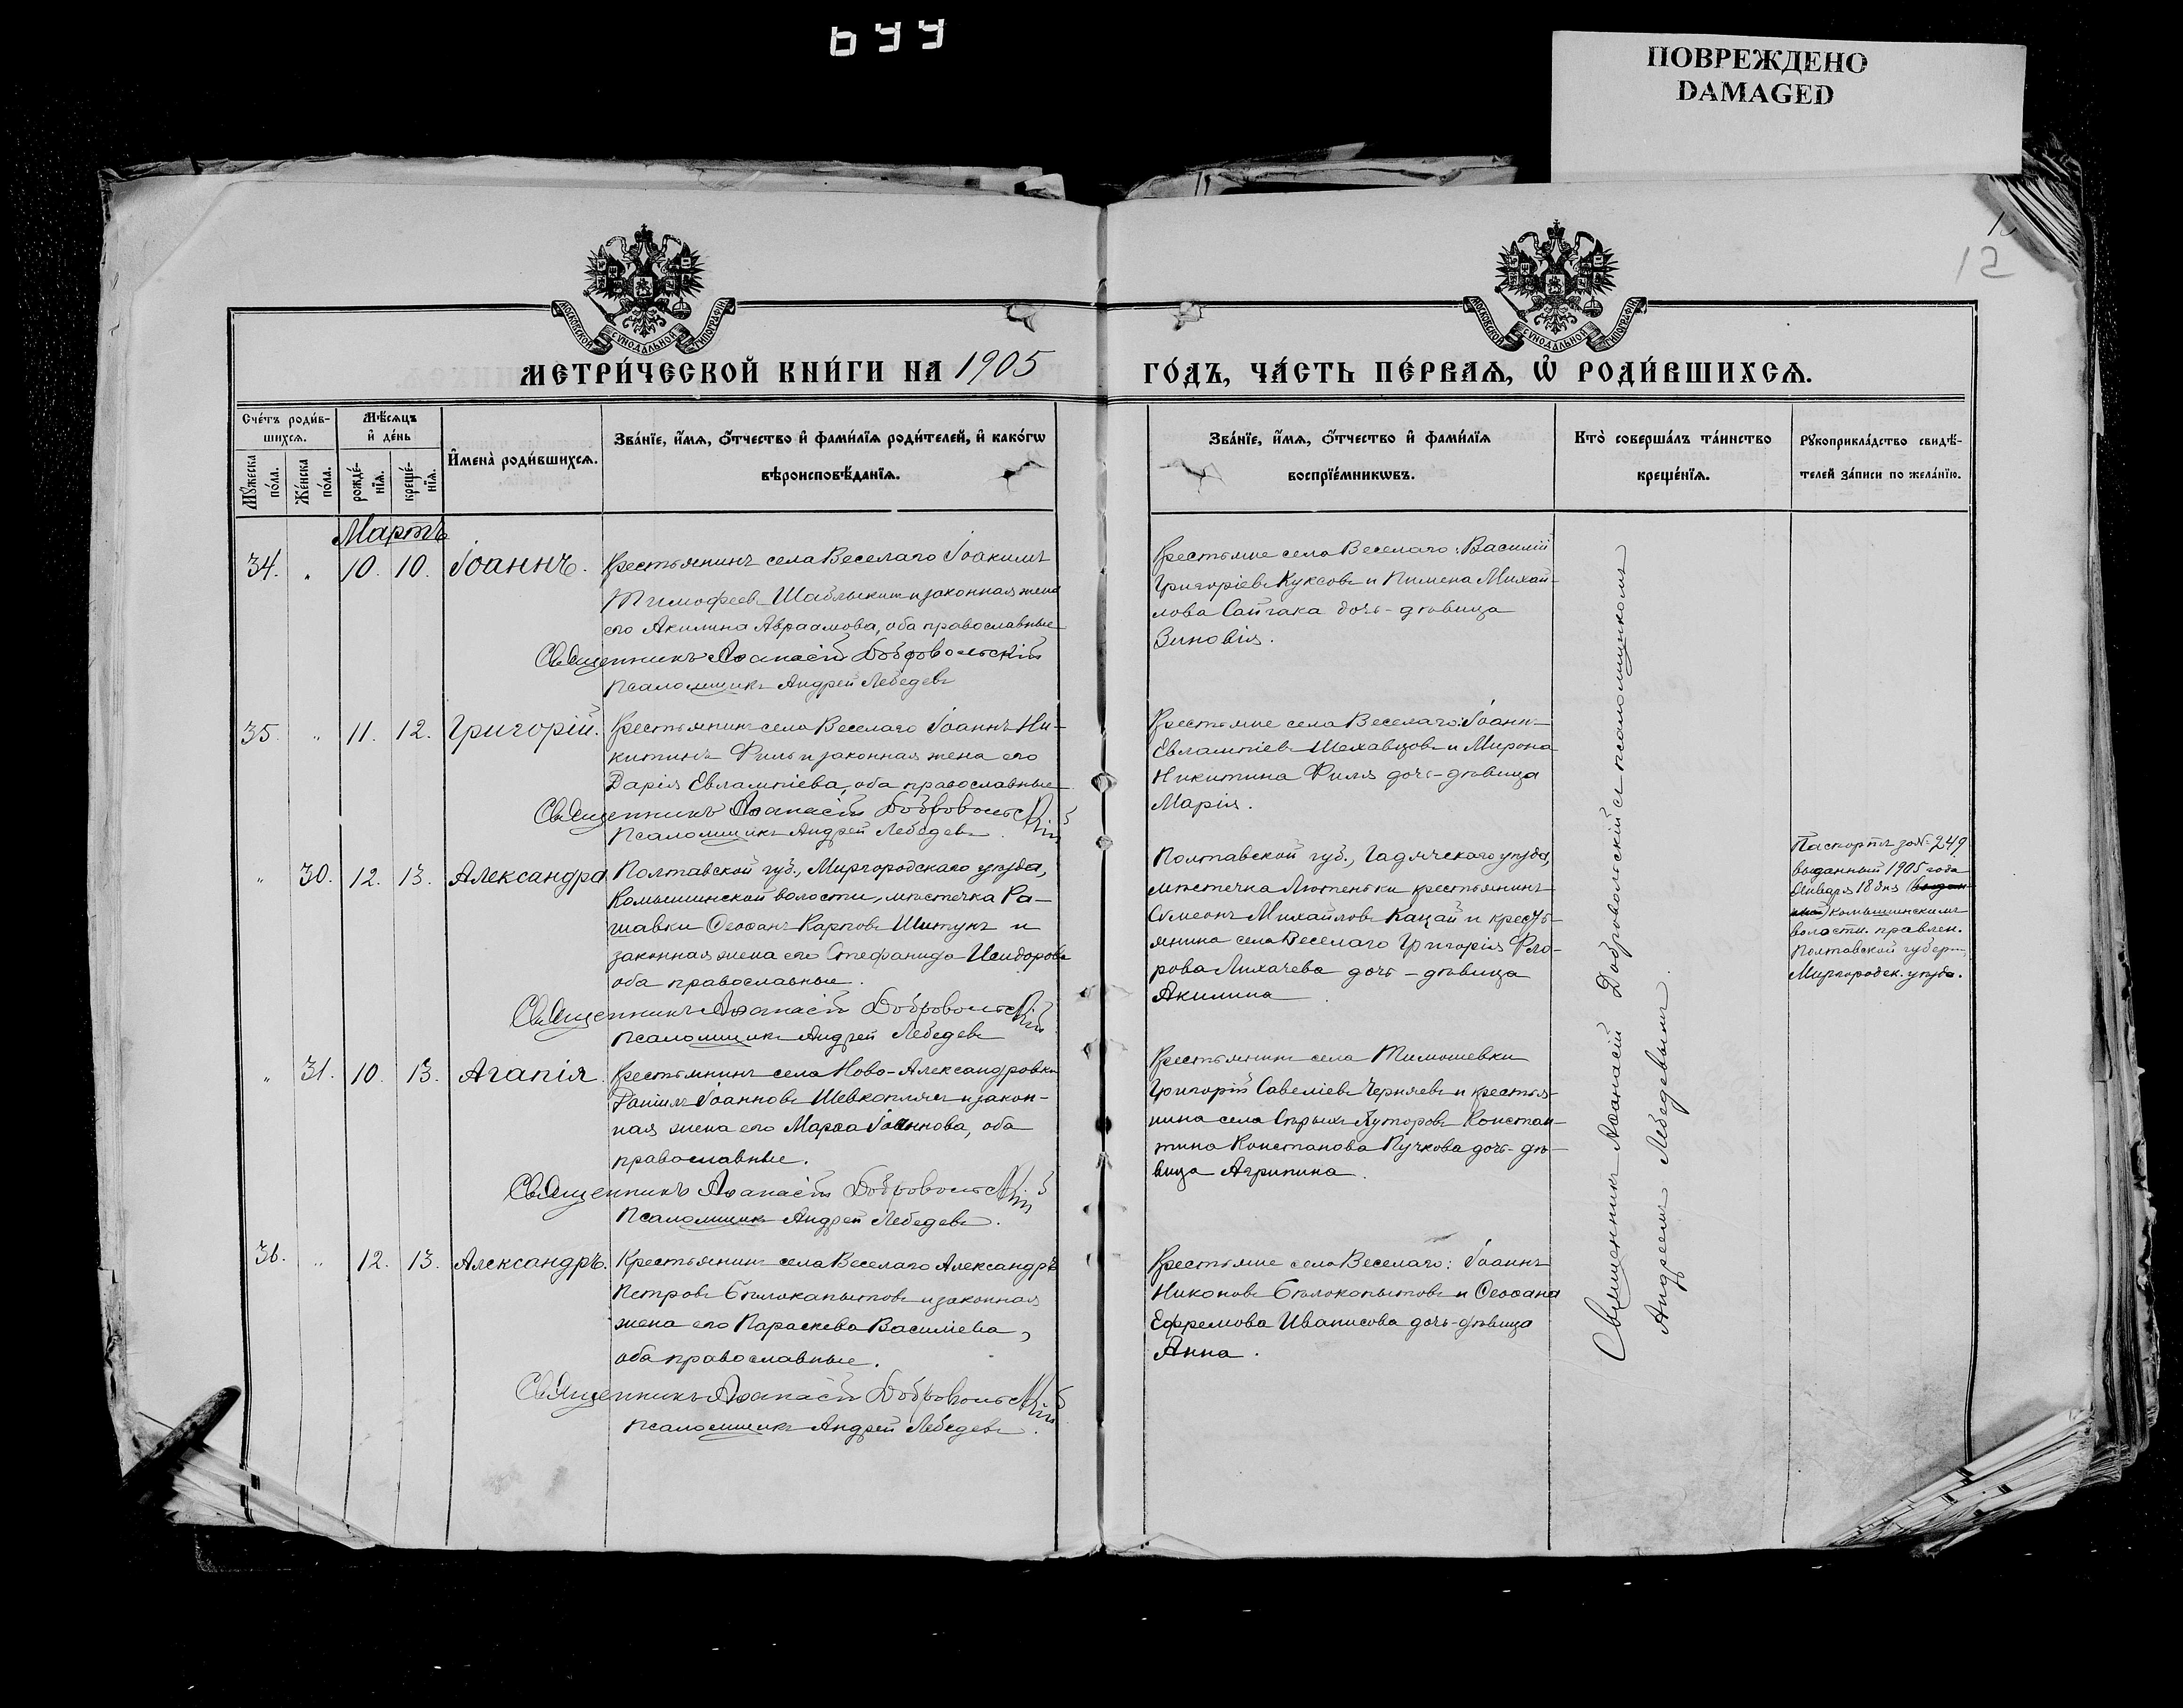 644
ПОВРЕЖДЕНО
DAMAGED
12
МОСКОВСКОЙ СѴНОДАЛЬНОЙ ТИПОГРАФІИ
МОСКОВСКОЙ СѴНОДАЛЬНОЙ ТИПОГРАФІИ
МЕТРИ́ЧЕСКОЙ КНИ́ГИ НА 1905
ГО́ДЪ, ЧА́СТЬ ПЕ́РВАѦ, Ѡ҆ РОДИ́ВШИХСѦ.
Сче́тъ роди́в-
шихсѧ.
Мѣ́сѧцъ
и҆ де́нь
Мꙋ́жеска по́ла.
Же́нска по́ла.
рожде́-
нїѧ.
креще́-
нїѧ.
И҆мена̀ роди́вшихсѧ.
Зва́нїе, и҆́мѧ, ѻ҆́тчество и҆ фами́лїѧ роди́телей, и҆ како́гѡ
вѣроисповѣ́данїѧ.
Зва́нїе, и҆́мѧ, ѻ҆́тчество и҆ фами́лїѧ
воспрїе́мникѡвъ.
Кто̀ соверша́лъ та́инство
креще́нїѧ.
Рꙋкоприкла́дство свидѣ́-
телей за́писи по жела́нїю.
Мартъ
34. „ 10. 10. Іоаннъ.
Крестьянинъ села Веселаго Іоакимъ
Тимофеевъ Шаблыкин и законная жена
его Акилина Авраамова, оба православные
Священникъ Аѳанасій Добровольскій
Псаломщикъ Андрей Лебедевъ
Крестьяне села Веселаго: Василій
Григоріевъ Куксовъ и Пимена Михай-
лова Сайгака дочь-дѣвица
Зиновія.
35. „ 11. 12. Григорій.
Крестьянинъ села Веселаго Іоаннъ Ни-
китинъ Филь и законная жена его
Дарія Евлампіева, оба православные
Священникъ Аѳанасій Добровольскій
Псаломщикъ Андрей Лебедевъ.
Крестьяне села Веселаго: Іоаннъ
Евлампіевъ Шехавцовъ и Мирона
Никитина Филя дочь-дѣвица
Марія.
„ 30. 12. 13. Александра
Полтавской губ., Миргородскаго уѣзда,
Комышинской волости, мѣстечка Ра-
шавки Ѳеофанъ Карповъ Шитукъ и
законная жена его Стефанида Исидорова
оба православные.
Священникъ Аѳанасій Добровольскій
Псаломщикъ Андрей Лебедевъ
Полтавской губ., Гадячскаго уѣзда,
мѣстечка Лютеньки крестьянинъ
Симеонъ Михайловъ Кацай и кресть-
янина села Веселаго Григорія Фло-
рова Лихачева дочь-дѣвица
Акилина.
Паспортъ за № 249
выданный 1905 года
Января 18 дня
комышинскимъ
волостн. правлен.
Полтавской губерн.,
Миргородск. уѣзда.
„ 31. 10. 13. Агапія.
Крестьянинъ села Ново-Александровки
Даніилъ Іоанновъ Шевкоплясъ и закон-
ная жена его Марѳа Іоаннова, оба
православные.
Священникъ Аѳанасій Добровольскій
Псаломщикъ Андрей Лебедевъ.
Крестьянинъ села Тимошевки
Григорій Савеліевъ Черняевъ и крестья-
нина села Старыхъ Хуторовъ Констан-
тина Константинова Пучкова дочь-дѣ-
вица Агрипина.
36. „ 12. 13. Александръ.
Крестьянинъ села Веселаго Александръ
Петровъ Бѣлокопытовъ и законная
жена его Параскева Василіева,
оба православные.
Священникъ Аѳанасій Добровольскій
Псаломщикъ Андрей Лебедевъ.
Крестьяне села Веселаго: Іоаннъ
Никоновъ Бѣлокопытовъ и Ѳеофана
Ефремова Иванисова дочь-дѣвица
Анна.
Священникъ Аѳанасій Добровольскій съ псаломщикомъ
Андреемъ Лебедевымъ.